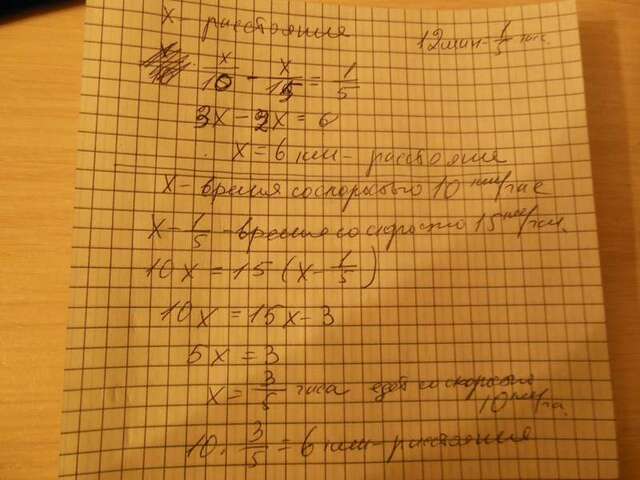 x - расстояния 12 мин - 1/5 час.
x/10 - x/15 = 1/5
3x - 2x = 6
x = 6 км - расстояния
x - время со скоростью 10 км/час
x - 1/5 - время со скоростью 15 км/час.
10x = 15(x - 1/5)
10x = 15x - 3
5x = 3
x = 3/5 часа едет со скоростью 10 км/ча.
10 · 3/5 = 6 км - расстояния